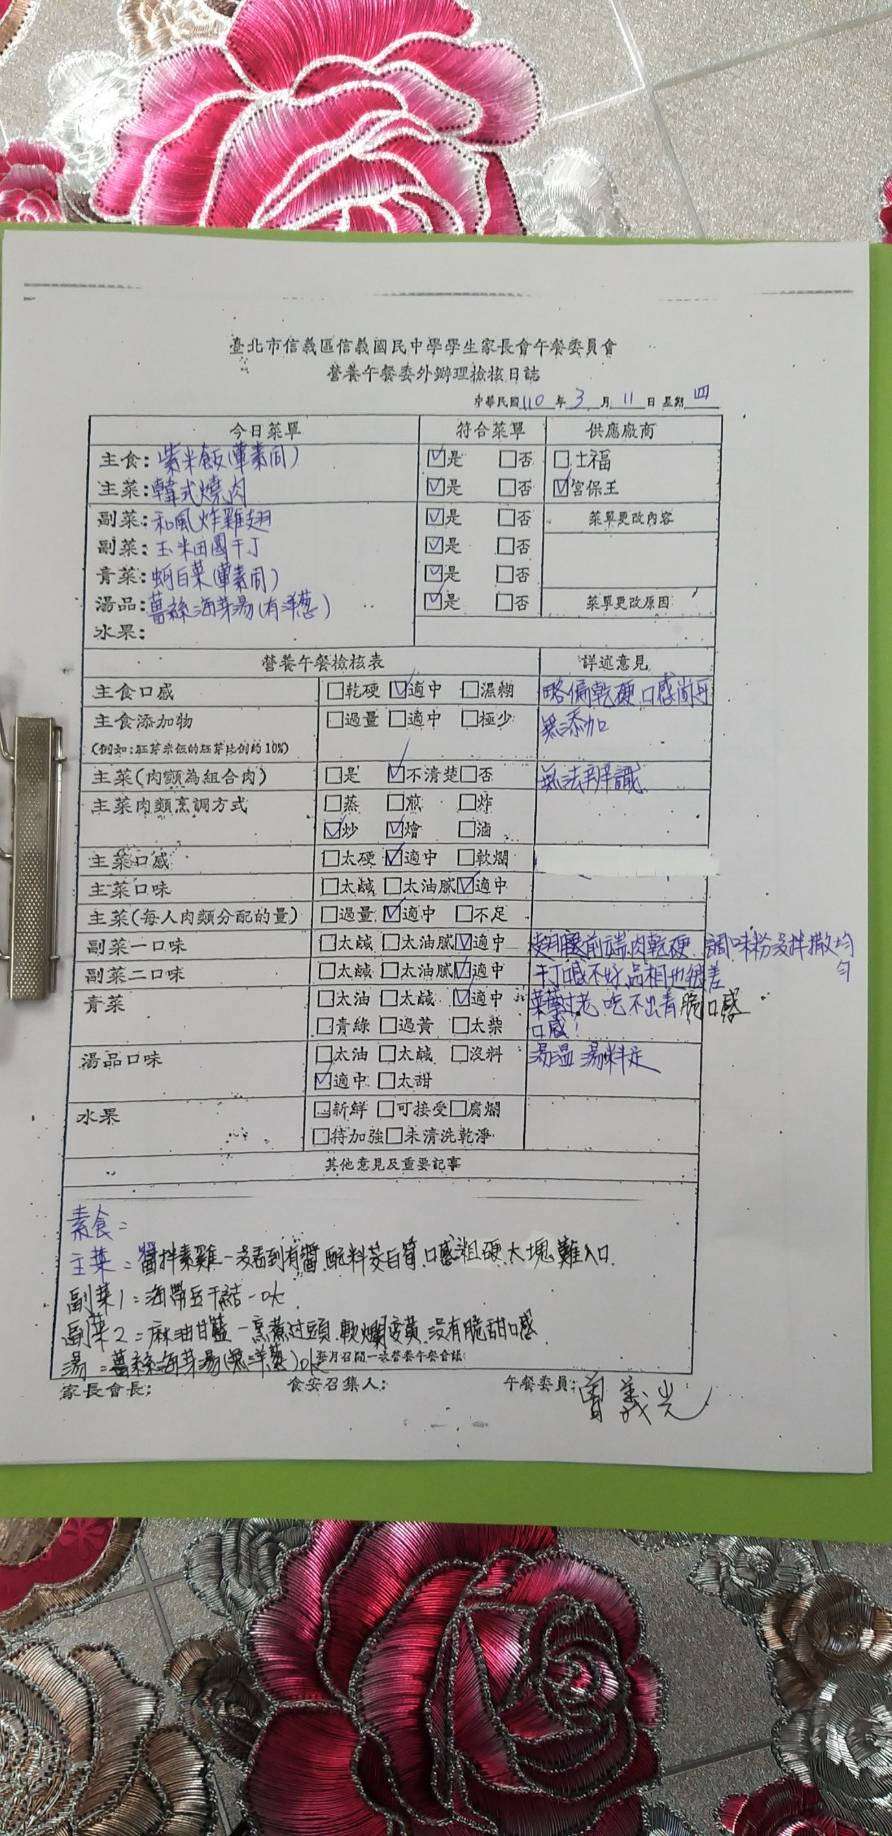 臺北市信義區信義國民中學學生家長會午餐委員會
營養午餐委外辦理檢核日誌
中華民國110年3月11日星期四
今日菜單 符合菜單 供應廠商
主食:紫米飯(葷素同) ☑是 □否 □士福
主菜:韓式燒肉 ☑是 □否 ☑宮保王
副菜:和風炸雞翅 ☑是 □否 菜單更改內容
副菜:玉米田園干丁 ☑是 □否
青菜:蚵白菜(葷素同) ☑是 □否
湯品:薑絲海芽湯(有洋蔥) ☑是 □否 菜單更改原因
水果:
營養午餐檢核表 詳述意見
主食口感 □乾硬 ☑適中 □濕糊 略偏乾硬 口感尚可
主食添加物 □過量 □適中 □極少 無添加
(例如:胚芽米飯的胚芽比例約10%)
主菜(肉類為組合肉) □是 ☑不清楚 □否 無法辨識
主菜肉類烹調方式 □蒸 □煎 □炸
☑炒 ☑燴 □滷
主菜口感 □太硬 ☑適中 □軟爛
主菜口味 □太鹹 □太油膩 ☑適中
主菜(每人肉類分配的量) □過量 ☑適中 □不足
副菜一口味 □太鹹 □太油膩 ☑適中 前端肉乾硬 調味粉沒拌撒均
勻
副菜二口味 □太鹹 □太油膩 ☑適中 干丁口感不好 品相也很差
青菜 □太油 □太鹹 ☑適中 葉莖过老 吃不出青脆口感
□青綠 □過黃 □太柴 口感!
湯品口味 □太油 □太鹹 □沒料 湯溫 湯料足
☑適中 □太甜
水果 □新鮮 □可接受 □腐爛
□待加強 □未清洗乾淨
其他意見及重要記事
素食:
主菜:醬拌素雞-沒看到有醬 配料茭白筍 口感粗硬 大塊難入口
副菜1:海帶豆干結-ok
副菜2:麻油甘藍-烹煮过頭 軟爛变黃 沒有脆甜口感
湯:薑絲海芽湯(無洋蔥)ok 每月召開一次營養午餐會議
家長會長: 食安召集人: 午餐委員: